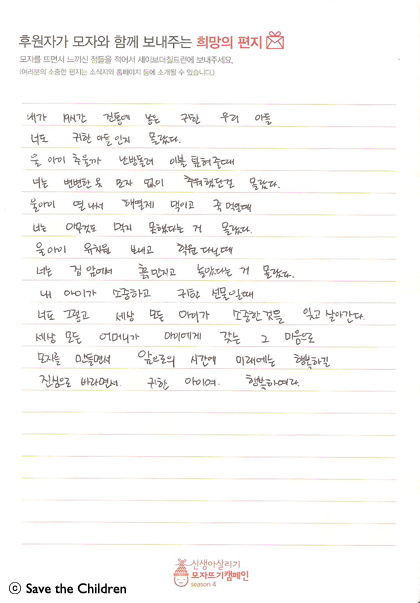 후원자가 모자와 함께 보내주는 희망의 편지
모자를 뜨면서 느끼신 점들을 적어서 세이브더칠드런에 보내주세요.
(여러분의 소중한 편지는 소식지와 홈페이지 등에 소개될 수 있습니다.)
내가 시간 진통에 낳은 귀한 우리 아들
너도 귀한 아들인지 몰랐다.
울 아이 추울까 난방틀려 이불 덮어줄때
너는 변변한 옷 모자 없이 추워했단걸 몰랐다.
울아이 열나서 해열제 먹이고 죽 먹일때
너는 아무것도 먹지 못했다는 거 몰랐다.
울 아이 유치원 보내고 학원 다닐때
너는 집 앞에서 흙 만지고 놀았다는 거 몰랐다.
내 아이가 소중하고 귀한 선물일때
너도 그렇고 세상 모든 아이가 소중한것을 잊고 살아간다.
세상 모든 어머니가 아이에게 갖는 그 마음으로
모자를 만들면서 앞으로의 시간에 미래에는 행복하길
진심으로 바라면서. 귀한 아이여. 행복하여라.
신생아살리기
모자뜨기캠페인
season 4
ⓒ Save the Children